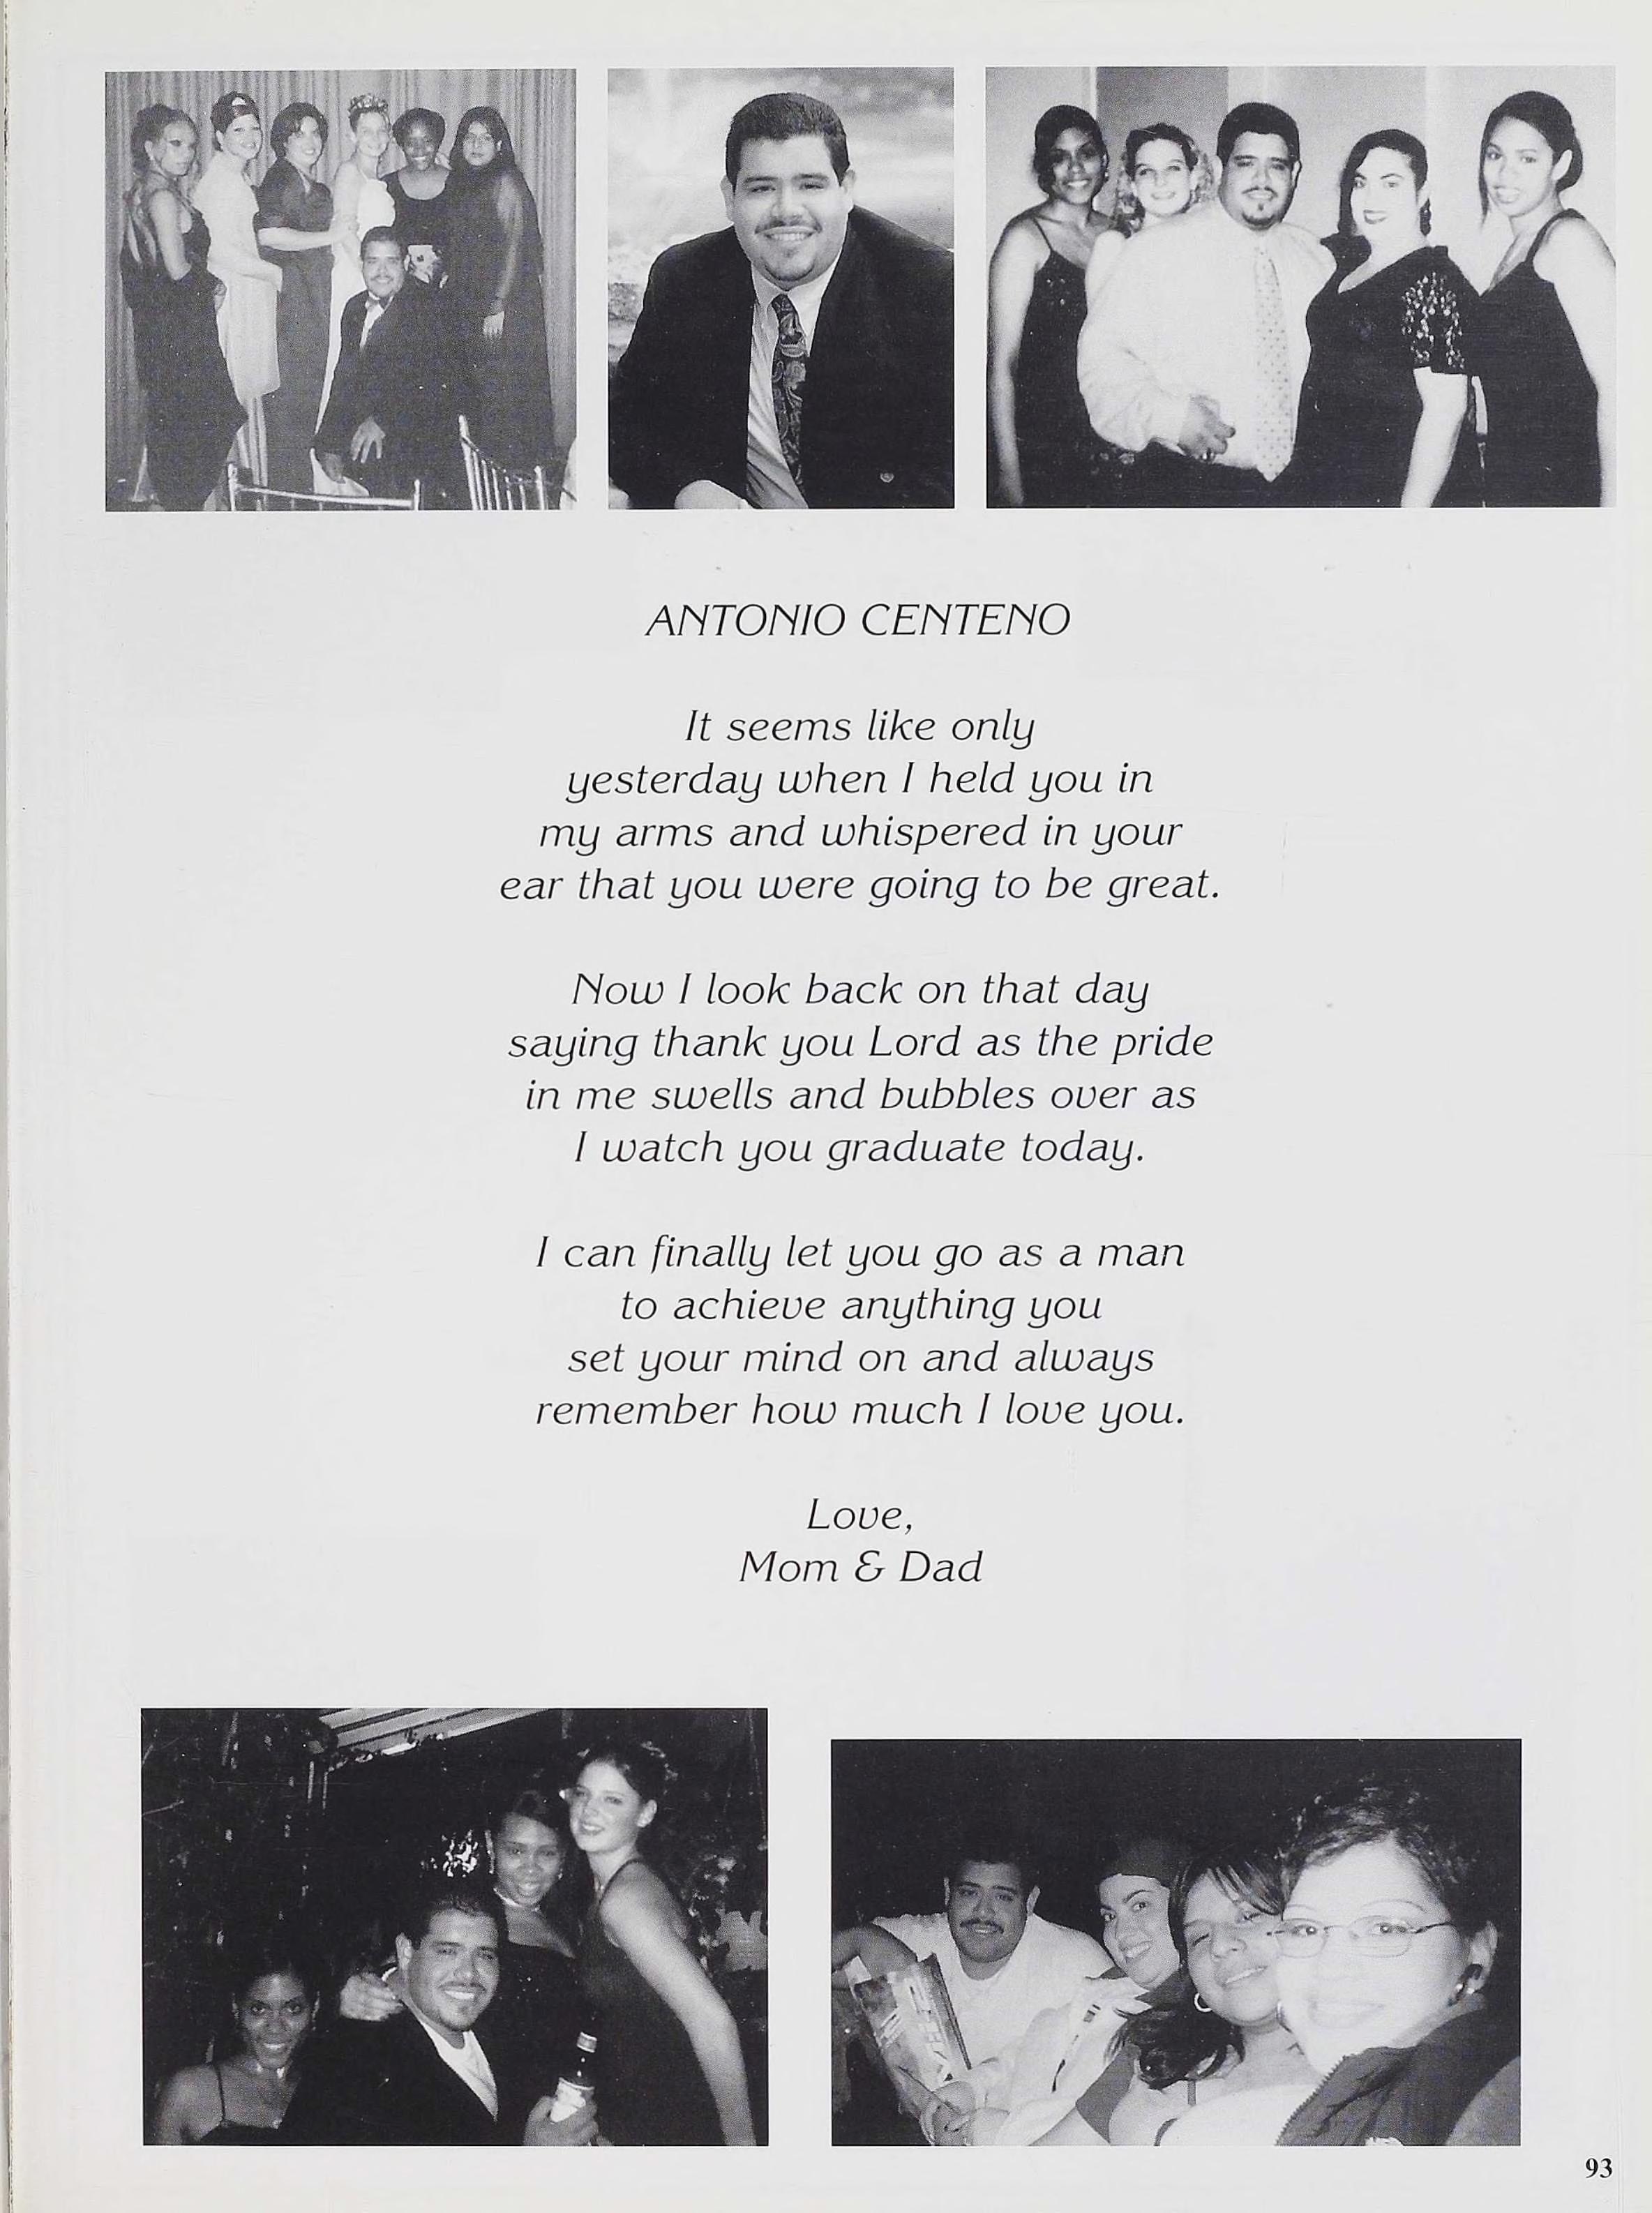 ANTONIO CENTENO
It seems like only
yesterday when I held you in
my arms and whispered in your
ear that you were going to be great.
Now I look back on that day
saying thank you Lord as the pride
in me swells and bubbles over as
I watch you graduate today.
I can finally let you go as a man
to achieve anything you
set your mind on and always
remember how much I love you.
Love,
Mom & Dad
93